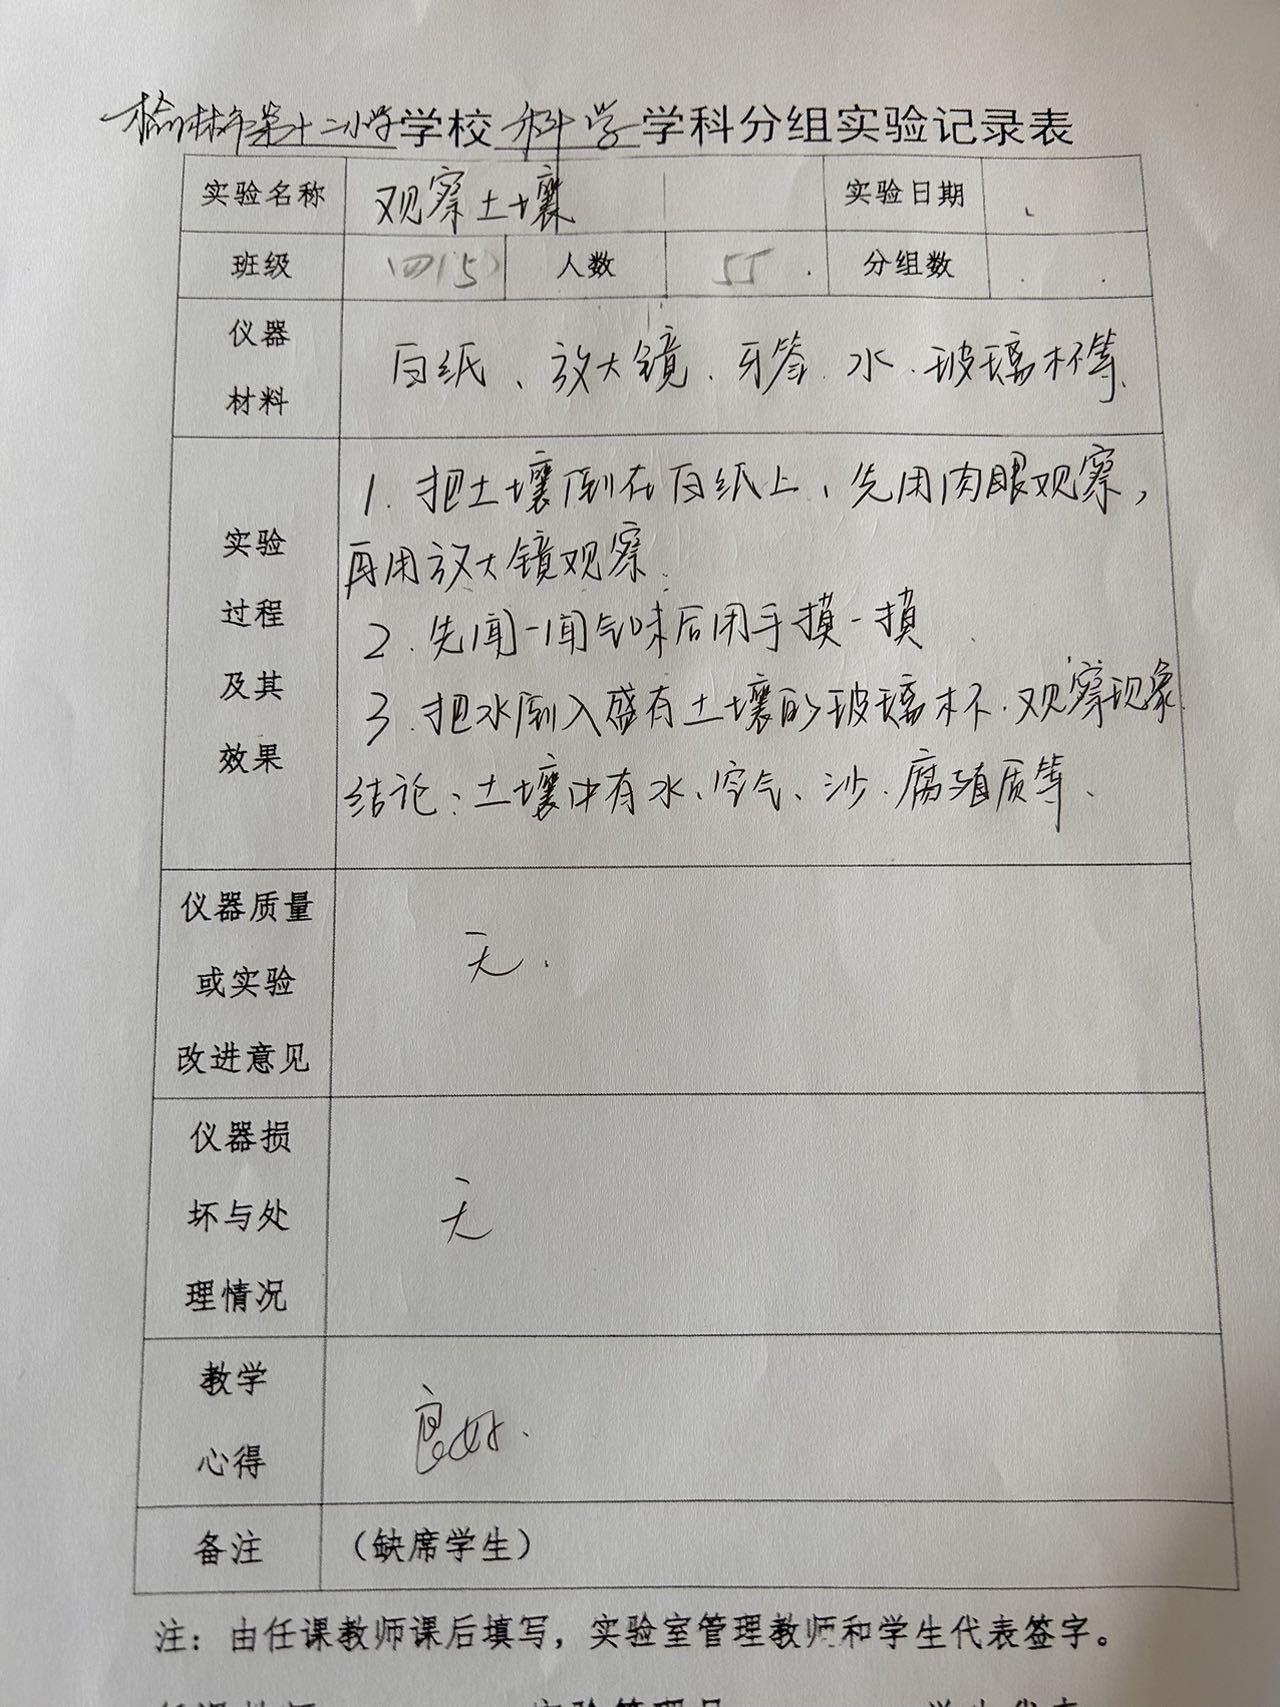 榆林市第十二小学学校科学学科分组实验记录表
实验名称 观察土壤 实验日期
班级 四(5) 人数 55 分组数
仪器
材料
白纸、放大镜、牙签、水、玻璃杯等、
实验
过程
及其
效果
1. 把土壤倒在白纸上，先用肉眼观察，
再用放大镜观察.
2. 先闻一闻气味后用手摸一摸
3. 把水倒入盛有土壤的玻璃杯.观察现象
结论：土壤中有水、空气、沙、腐殖质等、
仪器质量
或实验
改进意见
无.
仪器损
坏与处
理情况
无
教学
心得
良好.
备注 （缺席学生）
注：由任课教师课后填写，实验室管理教师和学生代表签字。